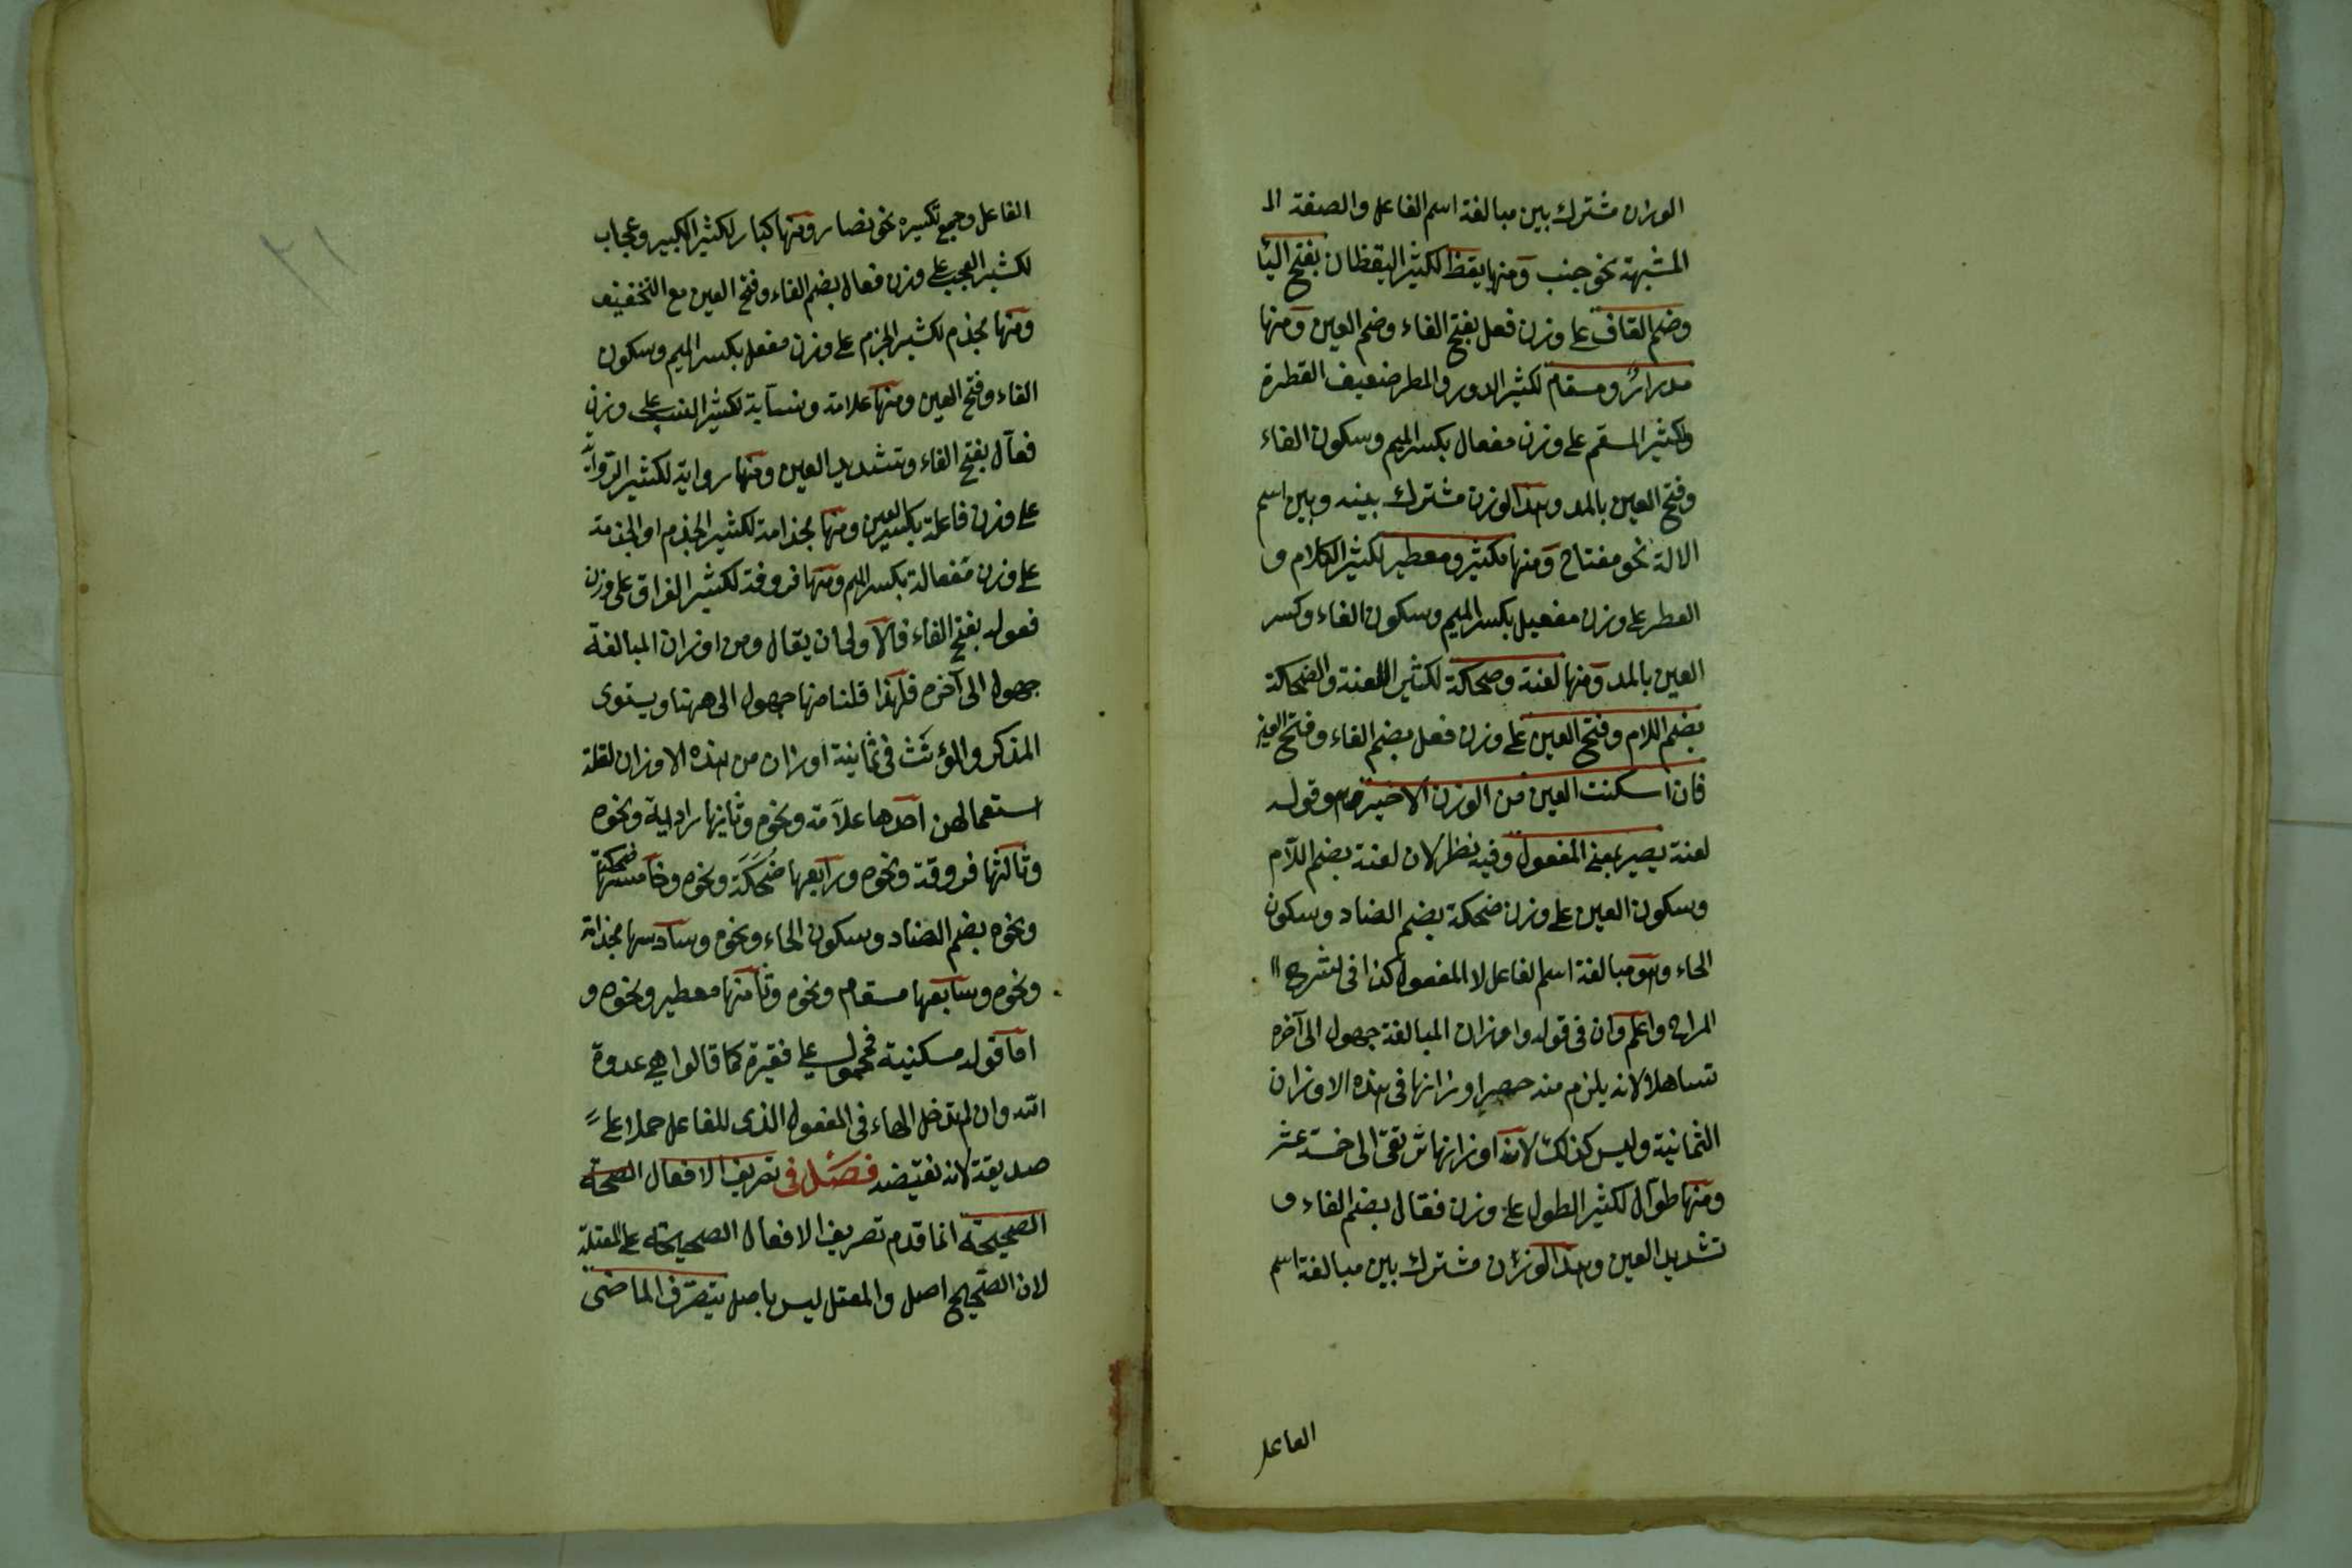 الوزان مشترك بين مبالغة اسم الفاعل والصفة الـ
المشبهة نحو جنب ومنها يقظ لكثير اليقظان بفتح اليا
وضم القاف على وزن فعل بفتح الفاء وضم العين ومنها
مدرار ومسقام لكثير الدور والمطر ضعيف القطرة
ولكثير السقم على وزن مفعال بكسر الميم وسكون الفاء
وفتح العين بالمد وهذا الوزن مشترك بينه وبين اسم
الالة نحو مفتاح ومنها مكثير ومعطير لكثير الكلام و
العطر على وزن مفعيل بكسر الميم وسكون الفاء وكسر
العين بالمد ومنها لعنة وضحكة لكثير اللعنة والضحكة
بضم اللام وفتح العين على وزن فعل بضم الفاء وفتح العين
فان اسكنت العين من الوزن الاخير وقوله
لعنة يصير بمعنى المفعول وفيه نظر لان لعنة بضم اللام
وسكون العين على وزن ضحكة بضم الضاد وسكون
الحاء وهو مبالغة اسم الفاعل لا المفعول كذا فى شرح
المراح واعلم وان فى قوله واوزان المبالغة جهول الى آخره
تساهلا لانه يلزم منه حصر اوزانها فى هذه الاوزان
الثمانية وليس كذلك لان اوزانها ترتقى الى خمسة عشر
ومنها طوال لكثير الطول على وزن فعّال بضم الفاء و
تشديد العين وهذا الوزن مشترك بين مبالغة اسم
الفاعل
الفاعل وجمع تكسيره نحو نصار ومنها كبار لكثير الكبير وعجاب
لكثير العجب على وزن فعال بضم الفاء وفتح العين مع التخفيف
ومنها مجذم لكثير الجزم على وزن مفعل بكسر الميم وسكون
الفاء وفتح العين ومنها علامة ونسابة لكثير النسب على وزن
فعال بفتح الفاء وتشديد العين ومنها رواية لكثير الرواية
على وزن فاعلة بكسر العين ومنها مجذامة لكثير الجذم او الجذمة
على وزن مفعالة بكسر الميم ومنها فروقة لكثير الفراق على وزن
فعوله بفتح الفاء فالاولى ان يقال ومن اوزان المبالغة
جهول الى آخره فلهذا قلنا منها جهول الى ههنا ويستوى
المذكر والمؤنث فى ثمانية اوزان من هذه الاوزان لقلة
استعمالهن احدها علامة ونحوه وثانيها راوية ونحوه
وثالثها فروقة ونحوه ورابعها ضُحَكَة ونحوه وخامسها ضحكة
ونحوه بضم الضاد وسكون الحاء ونحوه وسادسها مجذامة
ونحوه وسابعها مسقام ونحوه وثامنها معطير ونحوه و
اما قوله مسكينة فمحمول على فقيرة كما قالوا هى عدوة
الله وان لم تدخل الهاء فى المفعول الذى للفاعل حملا على
صديقة لانه نقيضه فصل فى تصريف الافعال الصحة
الصحيحة انما قدم تصريف الافعال الصحيحة على المعتلة
لان الصحيح اصل والمعتل ليس باصل يتصرف الماضى